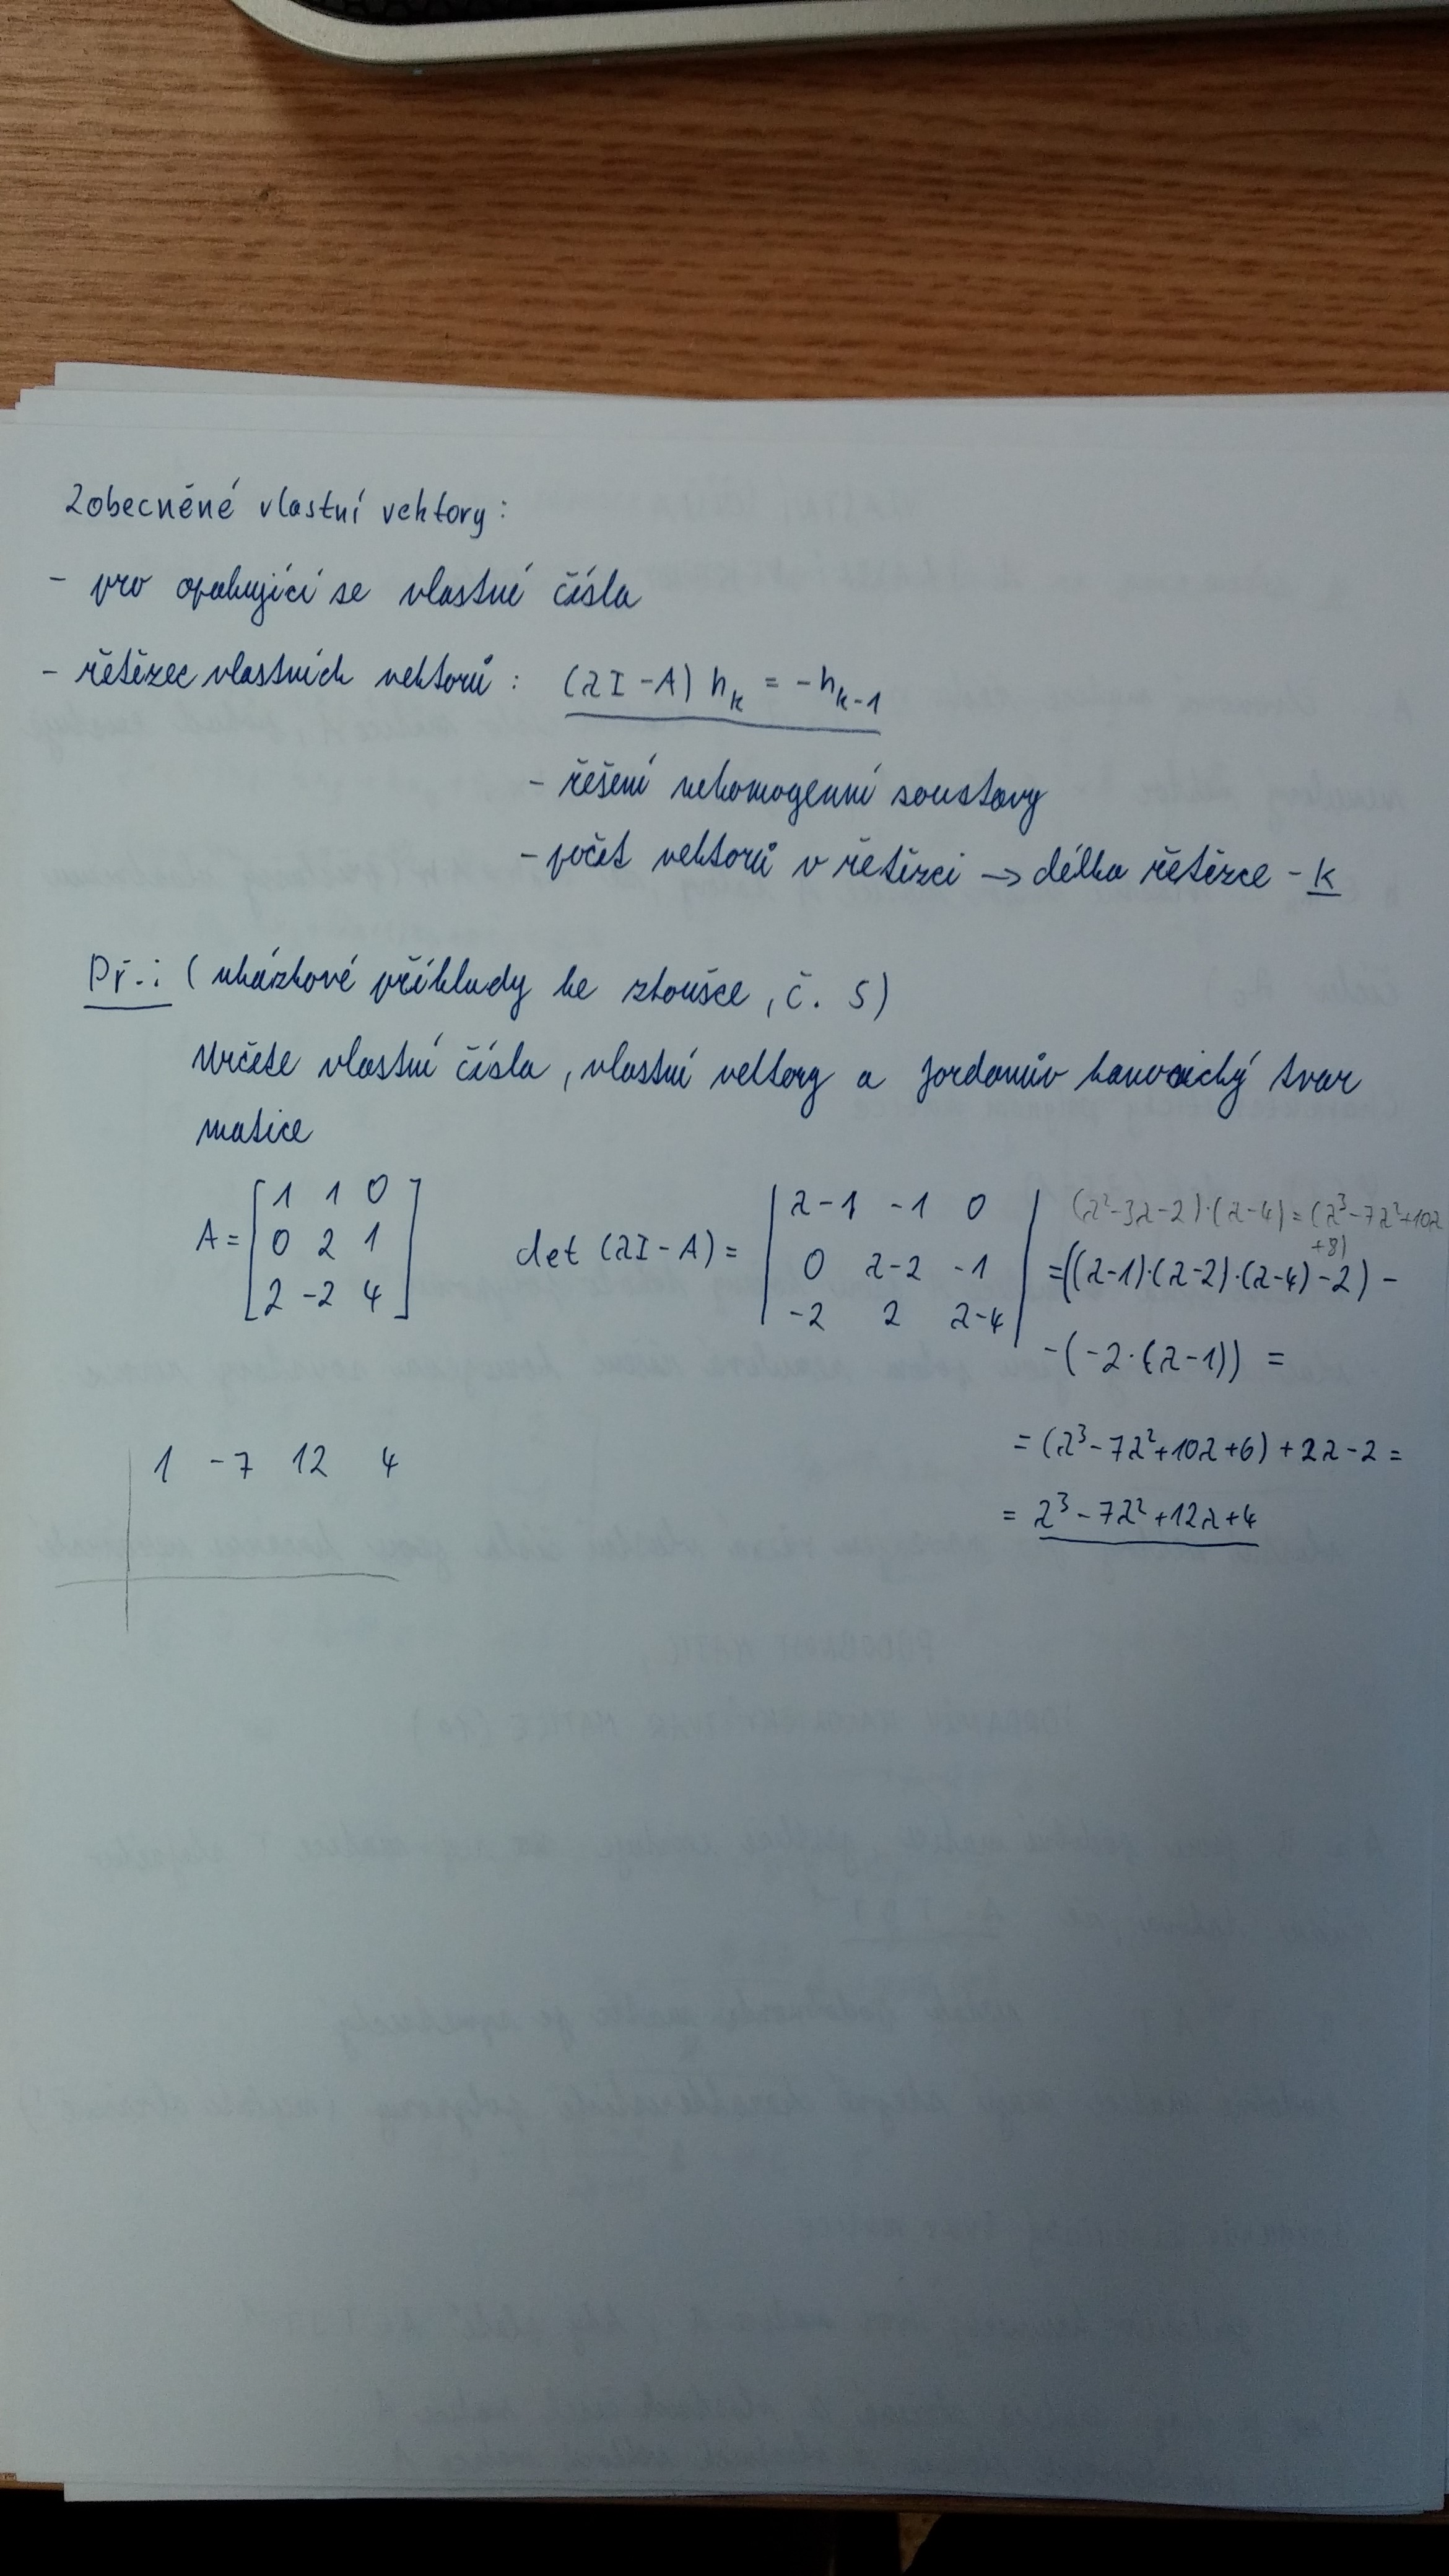 Zobecněné vlastní vektory:
- pro opakující se vlastní čísla
- řetězec vlastních vektorů : (λI-A) h_k = -h_k-1
- řešení nehomogenní soustavy
- počet vektorů v řetězci → délka řetězce - k
Př.: (ukázkové příklady ke zkoušce, č. 5)
Určete vlastní čísla, vlastní vektory a Jordanův kanonický tvar
matice
A = [1 1 0
0 2 1
2 -2 4]
det (λI-A) = | λ-1 -1 0
0 λ-2 -1
-2 2 λ-4 |
(λ²-3λ-2)·(λ-4) = (λ³-7λ²+10λ
+8)
=((λ-1)·(λ-2)·(λ-4)-2) -
-(-2·(λ-1)) =
= (λ³-7λ²+10λ+6) + 2λ-2 =
= λ³-7λ²+12λ+4
1 -7 12 4